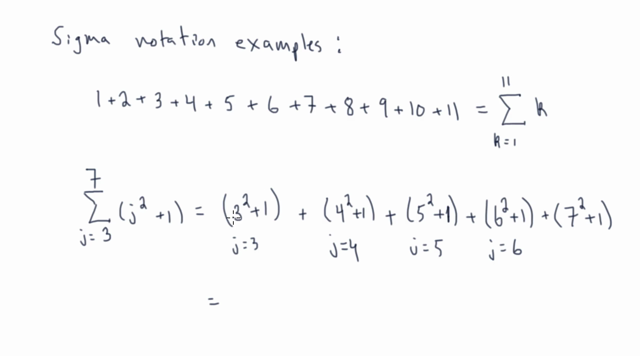 Sigma notation examples:
1+2+3+4+5+6+7+8+9+10+11 = ∑_{k=1}^{11} k
∑_{j=3}^{7} (j²+1) = (3²+1) + (4²+1) + (5²+1) + (6²+1) + (7²+1)
j=3 j=4 j=5 j=6
=